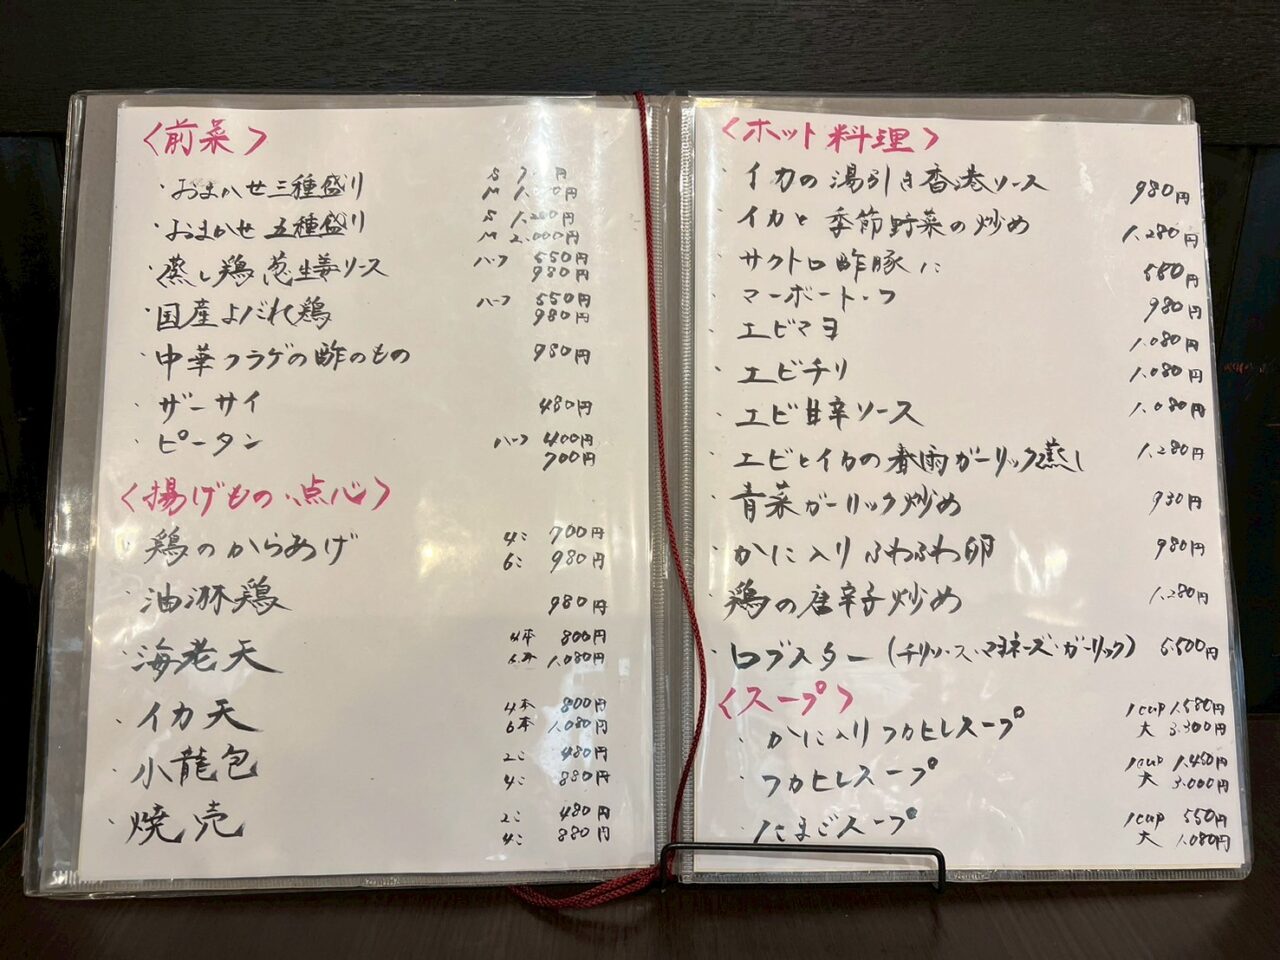 〈前菜〉
・おまかせ三種盛り S 円
M 円
・おまかせ五種盛り S 1,200円
M 2,000円
・蒸し鶏葱生姜ソース ハーフ 550円
980円
・国産よだれ鶏 ハーフ 550円
980円
・中華クラゲの酢のもの 980円
・ザーサイ 480円
・ピータン ハーフ 400円
700円
〈揚げもの・点心〉
・鶏のからあげ 4こ 700円
6こ 980円
・油淋鶏 980円
・海老天 4本 800円
6本 1,080円
・イカ天 4本 800円
6本 1,080円
・小龍包 2こ 480円
4こ 880円
・焼売 2こ 480円
4こ 880円
〈ホット料理〉
・イカの湯引き香港ソース 980円
・イカと季節野菜の炒め 1,280円
・サクトロ酢豚 1コ 550円
・マーボートーフ 980円
・エビマヨ 1,080円
・エビチリ 1,080円
・エビ甘辛ソース 1,080円
・エビとイカの春雨ガーリック蒸し 1,280円
・青菜ガーリック炒め 930円
・かに入りふわふわ卵 980円
・鶏の唐辛子炒め 1,280円
・ロブスター(チリソース・マヨネーズ・ガーリック) 5,500円
〈スープ〉
・かに入りフカヒレスープ 1cup 1,580円
大 3,300円
・フカヒレスープ 1cup 1,450円
大 3,000円
・たまごスープ 1cup 550円
大 1,080円